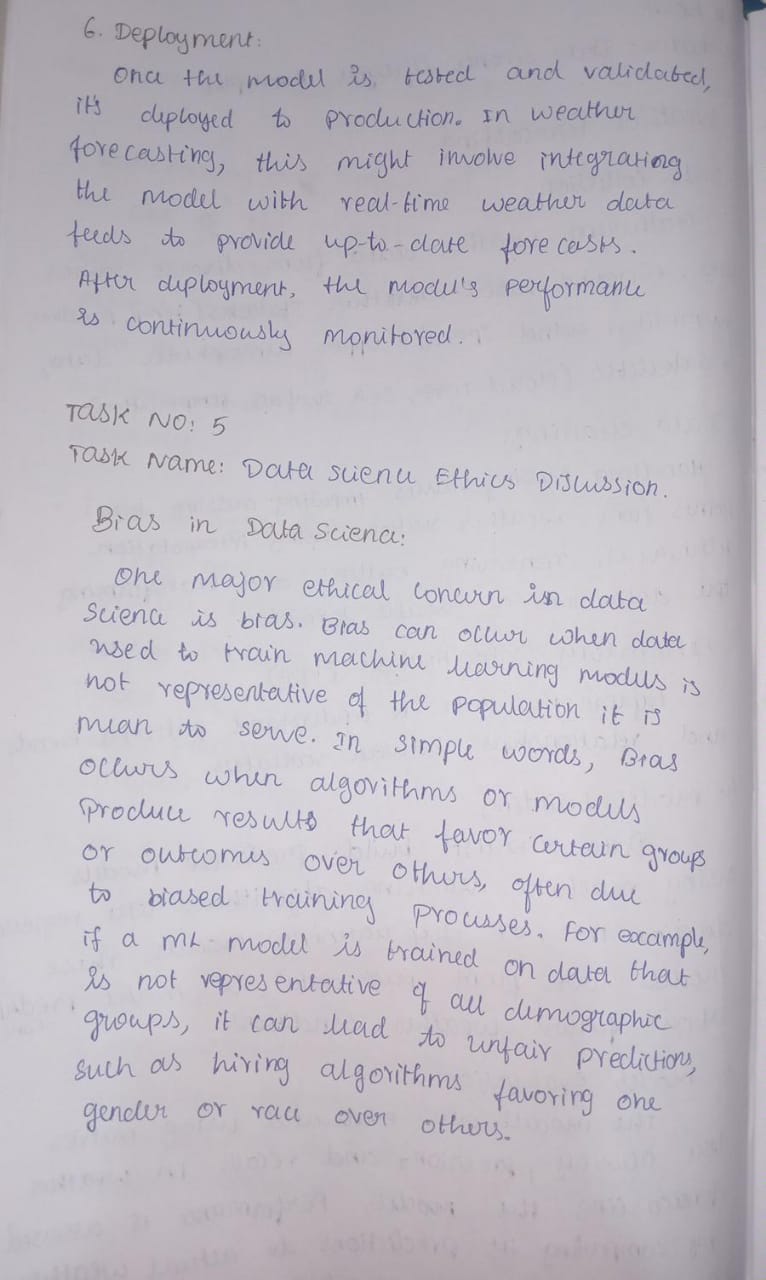 6. Deployment:
Once the model is tested and validated,
it's deployed to production. In weather
forecasting, this might involve integrating
the model with real-time weather data
feeds to provide up-to-date forecasts.
After deployment, the model's performance
is continuously monitored.
Task No: 5
Task Name: Data Science Ethics Discussion.
Bias in Data Science:
One major ethical concern in data
Science is bias. Bias can occur when data
used to train machine learning models is
not representative of the population it is
mean to serve. In simple words, Bias
occurs when algorithms or models
produce results that favor certain groups
or outcomes over others, often due
to biased training processes. For example,
if a ML model is trained on data that
is not representative of all demographic
groups, it can lead to unfair predictions,
such as hiring algorithms favoring one
gender or race over others.